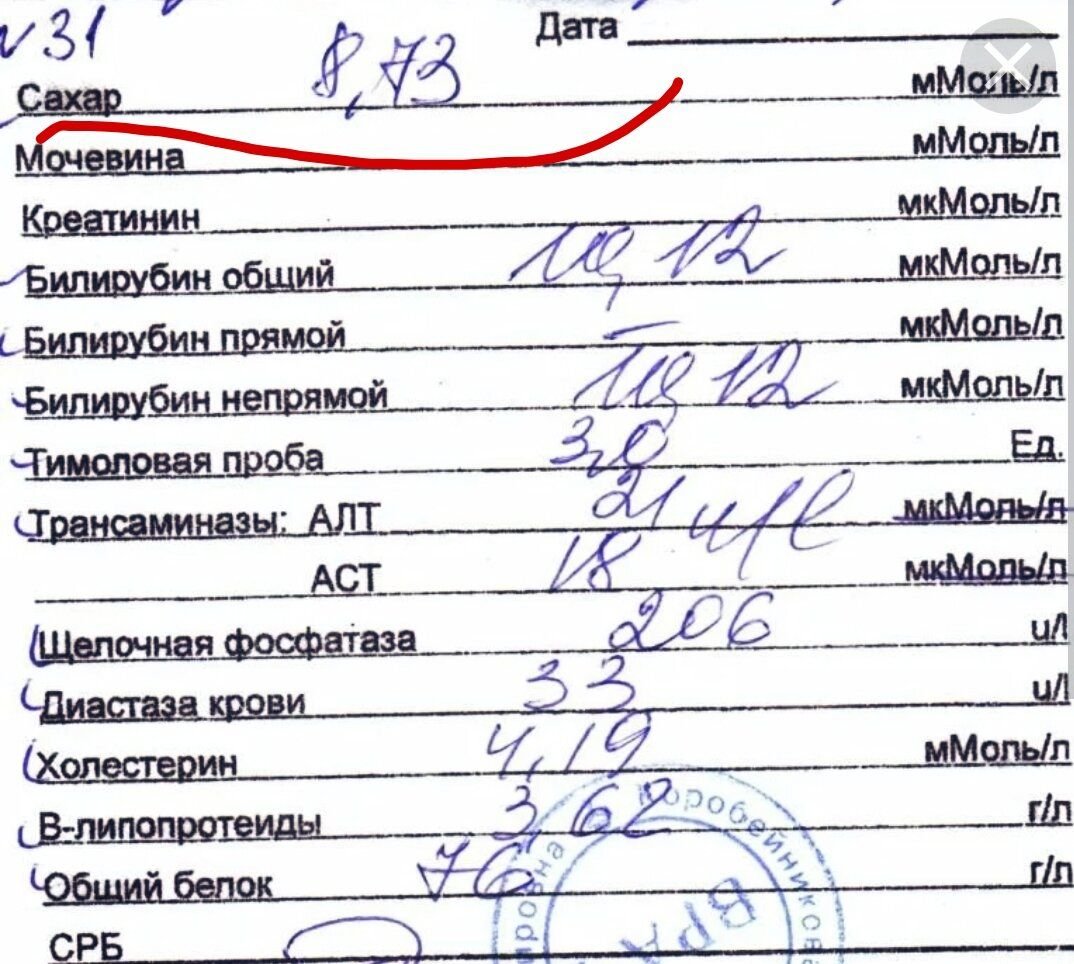 №31 Дата
Сахар 8,73 мМоль/л
Мочевина мМоль/л
Креатинин мкМоль/л
Билирубин общий 10,12 мкМоль/л
Билирубин прямой – мкМоль/л
Билирубин непрямой 10,12 мкМоль/л
Тимоловая проба 3,0 Ед.
Трансаминазы: АЛТ 21 u/l мкМоль/л
АСТ 18 мкМоль/л
Щелочная фосфатаза 206 u/l
Диастаза крови 33 u/l
Холестерин 4,19 мМоль/л
В-липопротеиды 3,62 г/л
Общий белок 76 г/л
СРБ
Коробейникова
ВРА